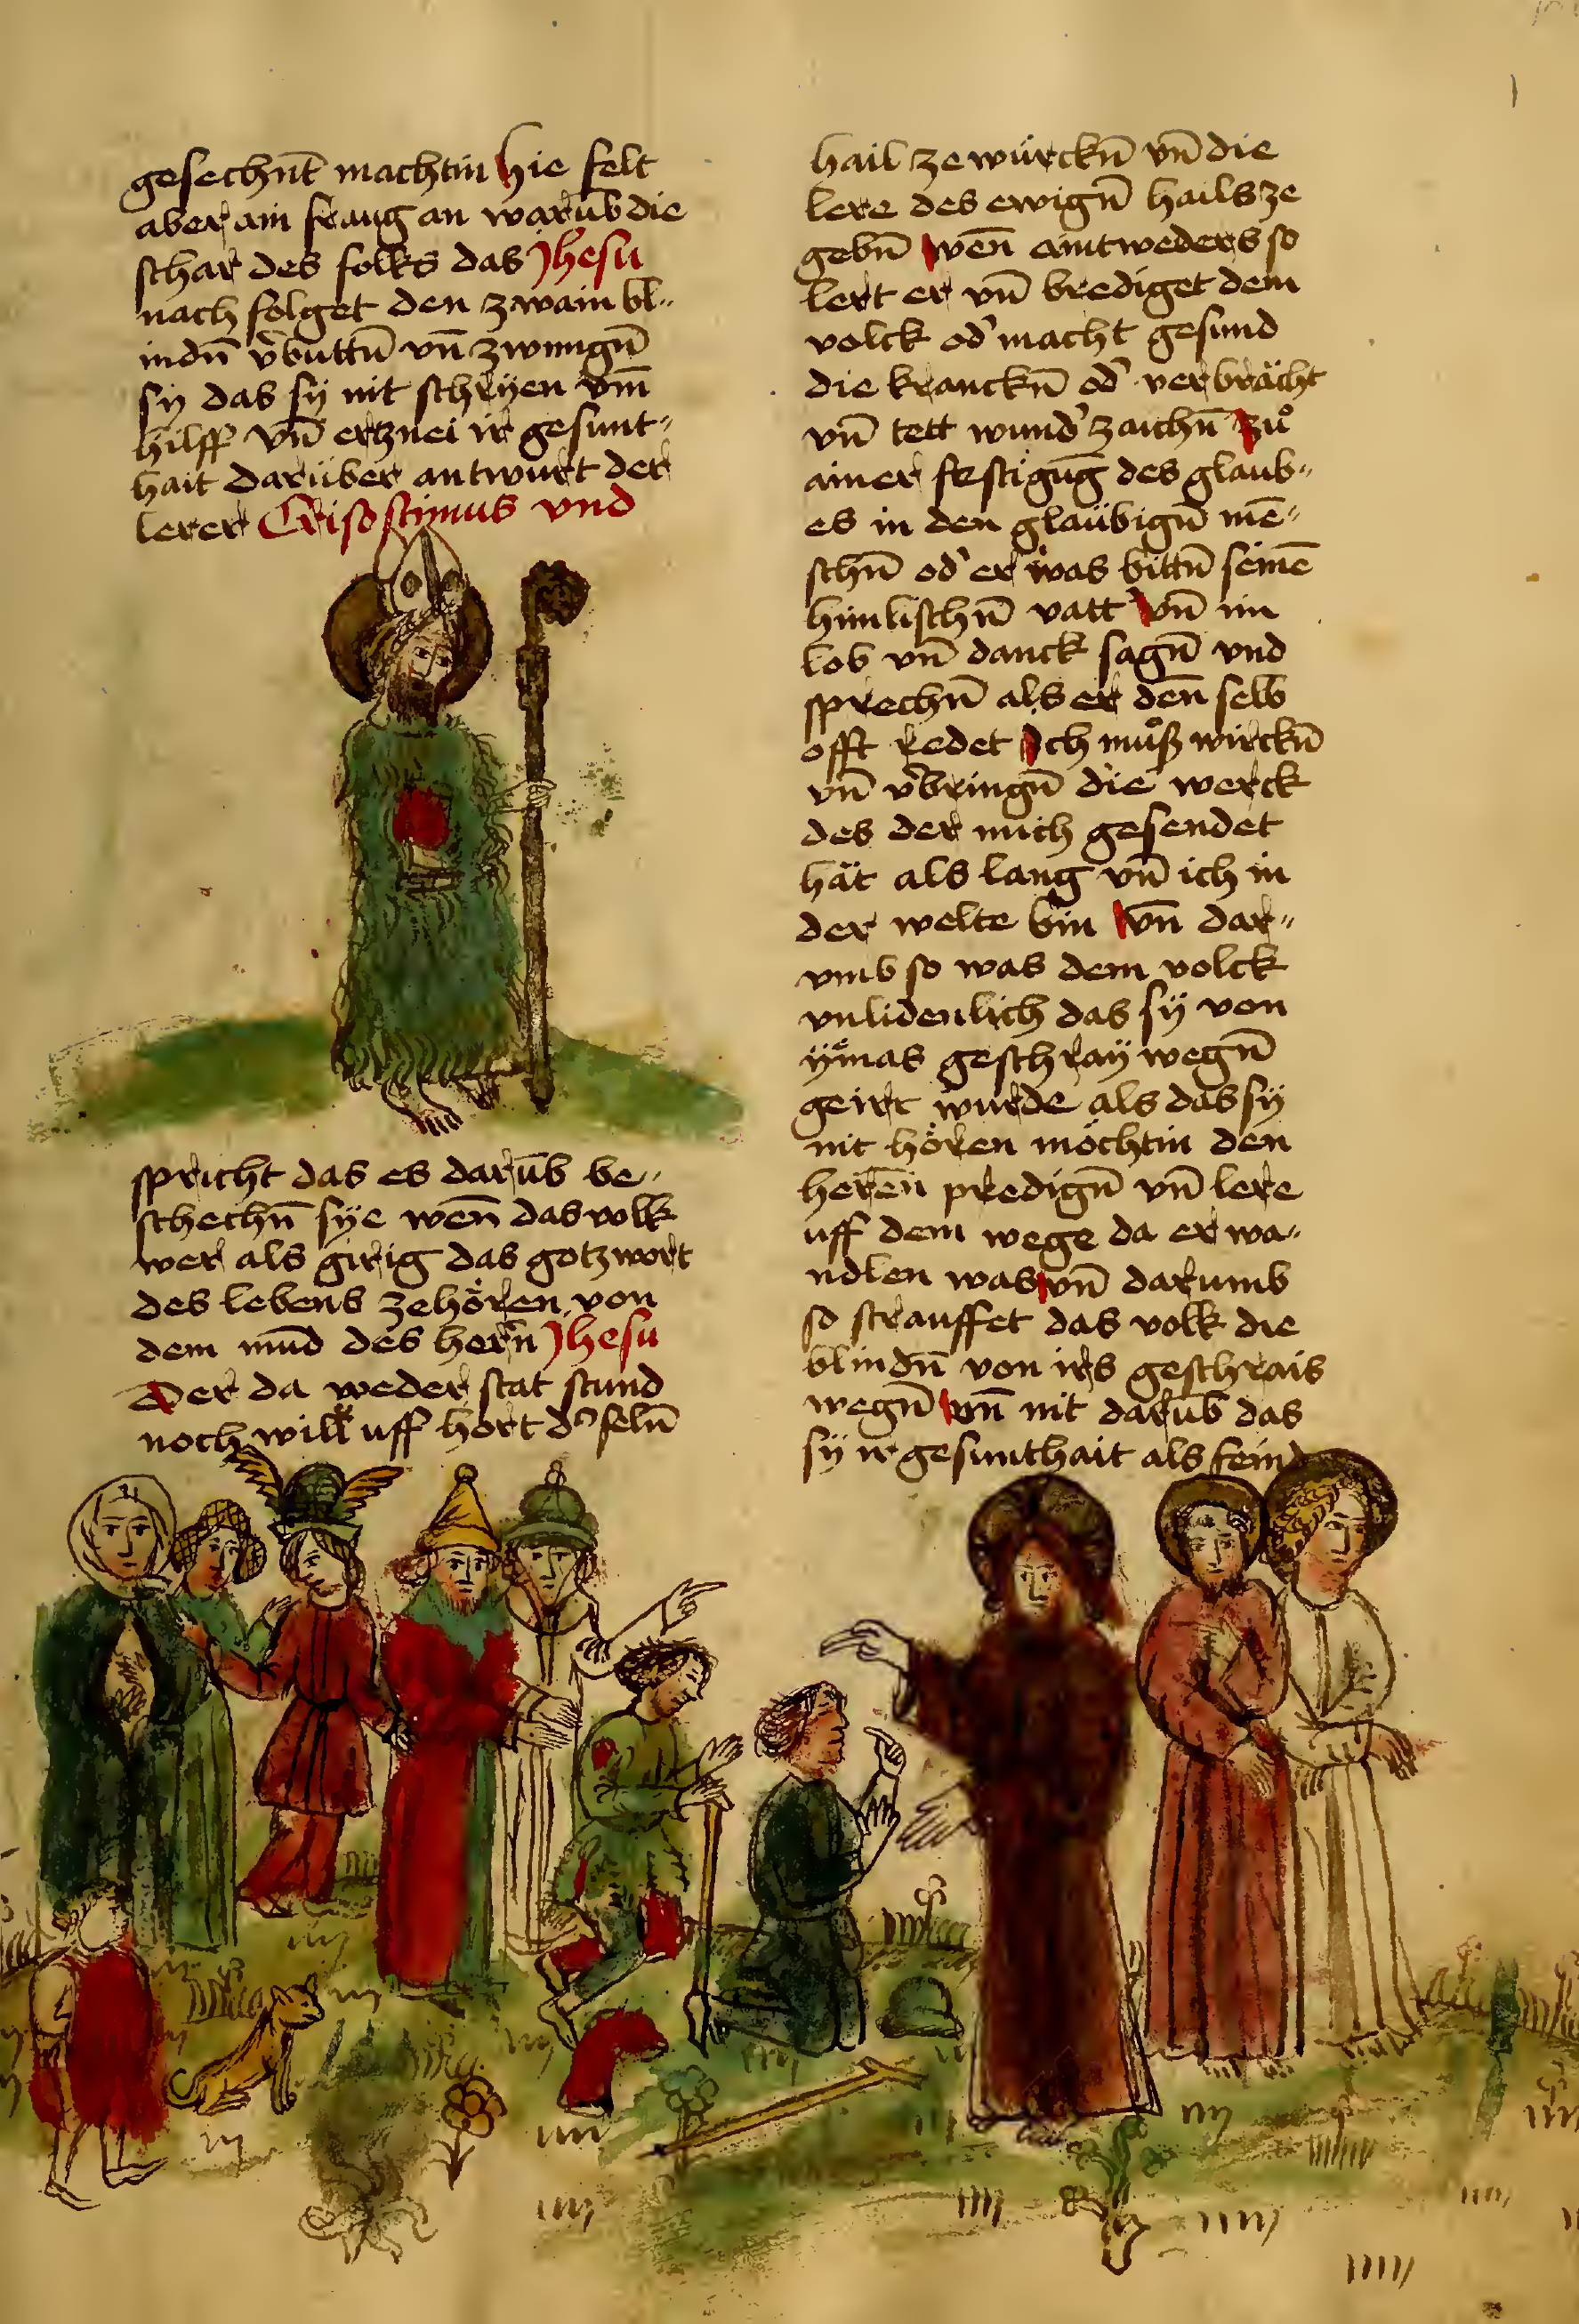 gesechnt̄ machtin hie felt
aber ain fraug an warūb die
schar des folks das Jhesu
nach folget den zwain bl〃
indn̄ v̓buttn̄ vn̄ zwungn̄
sÿ das sÿ nit schrÿen vm̄
hilff vn̄ ertznei ir gesunt〃
hait darüber antwurt der
lerer Crisostimus vnd
spricht das es darūb be〃
schechn̄ sÿe wen̄ das volk
wer als girig das gotz wort
des lebens zehören von
dem mūd des hern̄ Jhesu
Der da weder stat stund
noch will uff hört d̓ seln̄
hail ze würckn̄ vn̄ die
lere des ewign̄ hails ze
gebn̄ wen̄ aintweders so
lert er vn̄ brediget dem
volck od̓ macht gesund
die kranckn̄ od̓ verbrächt
vn̄ tett wund̓ zaichn̄ zuͦ
ainer festigūg des glaub〃
es in den glaübign̄ mē〃
schn̄ od̓ er was bittn̄ seinē
himlischn̄ vatt̓ vn̄ im
lob vn̄ danck sagn̄ vnd
sprechn̄ als er den̄ selb
offt redet Ich muͦß wirckn̄
vn̄ v̓bringn̄ die werck
des der mich gesendet
hät als lang vn̄ ich in
der welte bin vn̄ dar〃
vmb so was dem volck
vnlidenlich das sÿ von
ÿemas geschraÿ wegn̄
geirt wurde als das sÿ
nit hören möchtin den
herēn predign̄ vn̄ lere
uff dem wege da er wa〃
ndlen was vn̄ darumb
so strauffet das volk die
blindn̄ von irs geschrais
wegn̄ vn̄ nit darūb das
sÿ ir gesunthait als feind